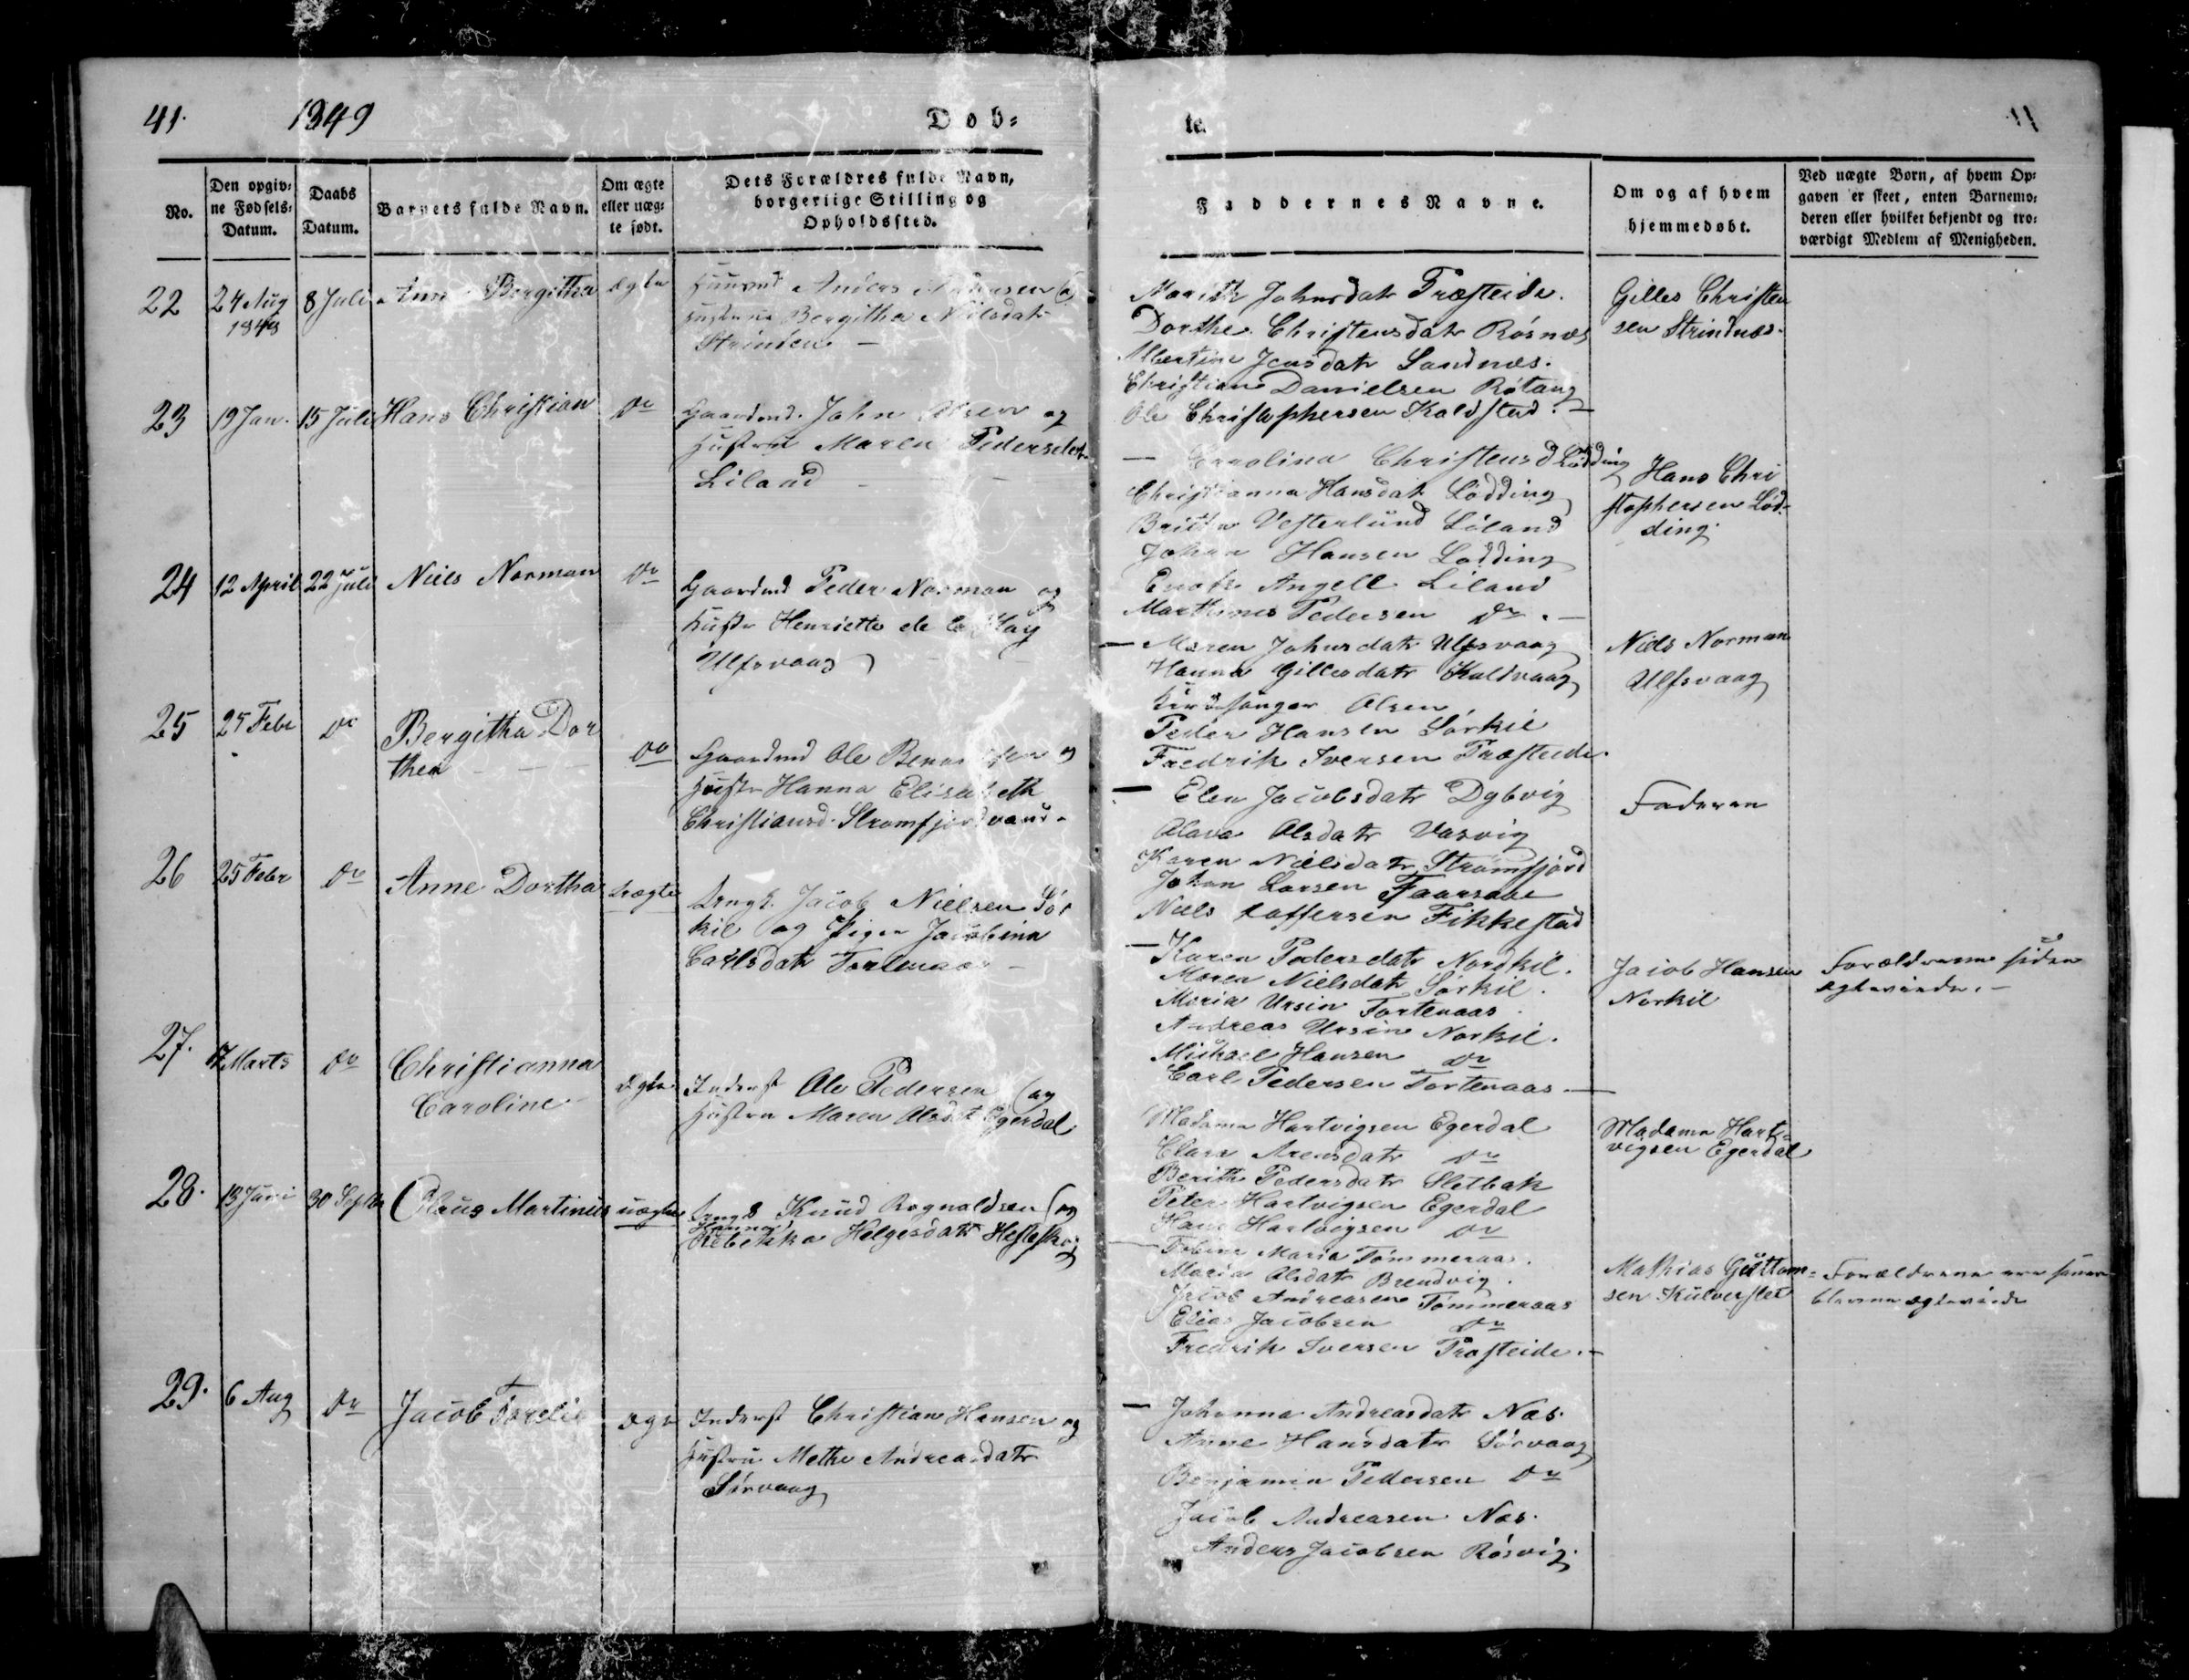 41.
1849
Døb-
te.
No.
Den opgiv-
ne Fødsels-
Datum.
Daabs
Datum.
Barnets fulde Navn.
Om ægte
eller uæg-
te født.
Dets Forældres fulde Navn,
borgerlige Stilling og
Opholdssted.
Faddernes Navne.
Om og af hvem
hjemmedøbt.
Ved uægte Børn, af hvem Op-
gaven er skeet, enten Barnemo-
deren eller hvilket bekjendt og tro-
værdigt Medlem af Menigheden.
22
24 Aug
1848
8 Juli
Anne Bergitha
ægte
Huusmd Anders og
Hustrue Bergitha Nielsdatr
Strinden –
Marith Johnsdatr Præsteide.
Dorthe Christensdatr Røsnæs
Albertine Jensdatr Sandnæs.
Christian Danielsen Røtang
Ole Christophersen Kaldstad. –
Gilles Christen
sen Strindnæs.
23
19 Jan.
15 Juli
Hans Christian
Do
Gaardmd. John Olsen og
Hustru Maren Pedersdatr
Liland
– Carolina Christensd Lødding
Christianna Hansdatr Lødding
Britha Vesterlund Liland
Johan Hansen Lødding
Enoch Angell Liland
Marthinus Pedersen Do. –
Hans Chri
stophersen Lød-
ding.
24
12 April
22 Juli
Niels Norman
Do
Gaardmd Peder Norman og
Hustr Henriette de la
Ulfsvaag
– Maren Johnsdatr Ulfsvaag
Hanna Gillesdatr Kaldvaag
Kirkesanger Olsen
Peder Hansen Sørkil
Fredrik Iversen Præsteide.
Niels Norman
Ulfsvaag
25
25 Febr
Do
Bergitha Dor
thea
Do
Gaardmd Ole og
Hustr Hanna Elisabeth
Christiansd. Strømfjordvand.
– Elen Jacobsdatr Dybvig
Olava Olsdatr Vasvig
Karen Nielsdatr Strømfjord
Johan Larsen
Niels Toffersen Fikkestad
Faderen
26
25 Febr
Do
Anne Dorthea
uægte
Drengk. Jacob Nielsen Sør
kil og Pigen Jacobina
Carlsdatr Tortenaas –
– Karen Pedersdatr Nordkil.
Maren Nielsdatr Sørkil.
Maria Ursin Tortenaas.
Andreas Ursin Norkil.
Michael Hansen Do
Carl Pedersen Tortenaas –
Jacob Hansen
Norkil
Forældrene siden
ægteviede. –
27.
17 Marts
Do
Christianna
Caroline
ægte
Inderst Ole Pedersen og
Hustru Maren Olsdatr Egerdal
Madame Hartvigsen Egerdal
Clara Arensdatr Do
Berith Pedersdatr Sletbak
Peter Hartvigsen Egerdal
Hans Hartvigsen Do
Madame Hart-
vigsen Egerdal
28.
13 Juni
30 Septbr
Claus Martinius
uægte
Knud Rognaldsen og
Hanna
Rebekka Helgesdatr
– Maria Tømmeraas.
Maria Olsdatr Brendvig.
Jacob Andreasen Tømmeraas
Elias Jacobsen Do
Fredrik Iversen Præsteide. –
Mathias Guttom-
sen Kulverslet
Forældrene ere senere
blevne ægteviede
29.
6 Aug
Do
Jacob
ægte
Inderst Christian Hansen og
Hustru Methe Andreasdatr
Sørvaag
– Johanna Andreasdatr Næs.
Anne Hansdatr Sørvaag
Benjamin Pedersen Do
Jacob Andreasen Næs.
Anders Jacobsen Røsvig.